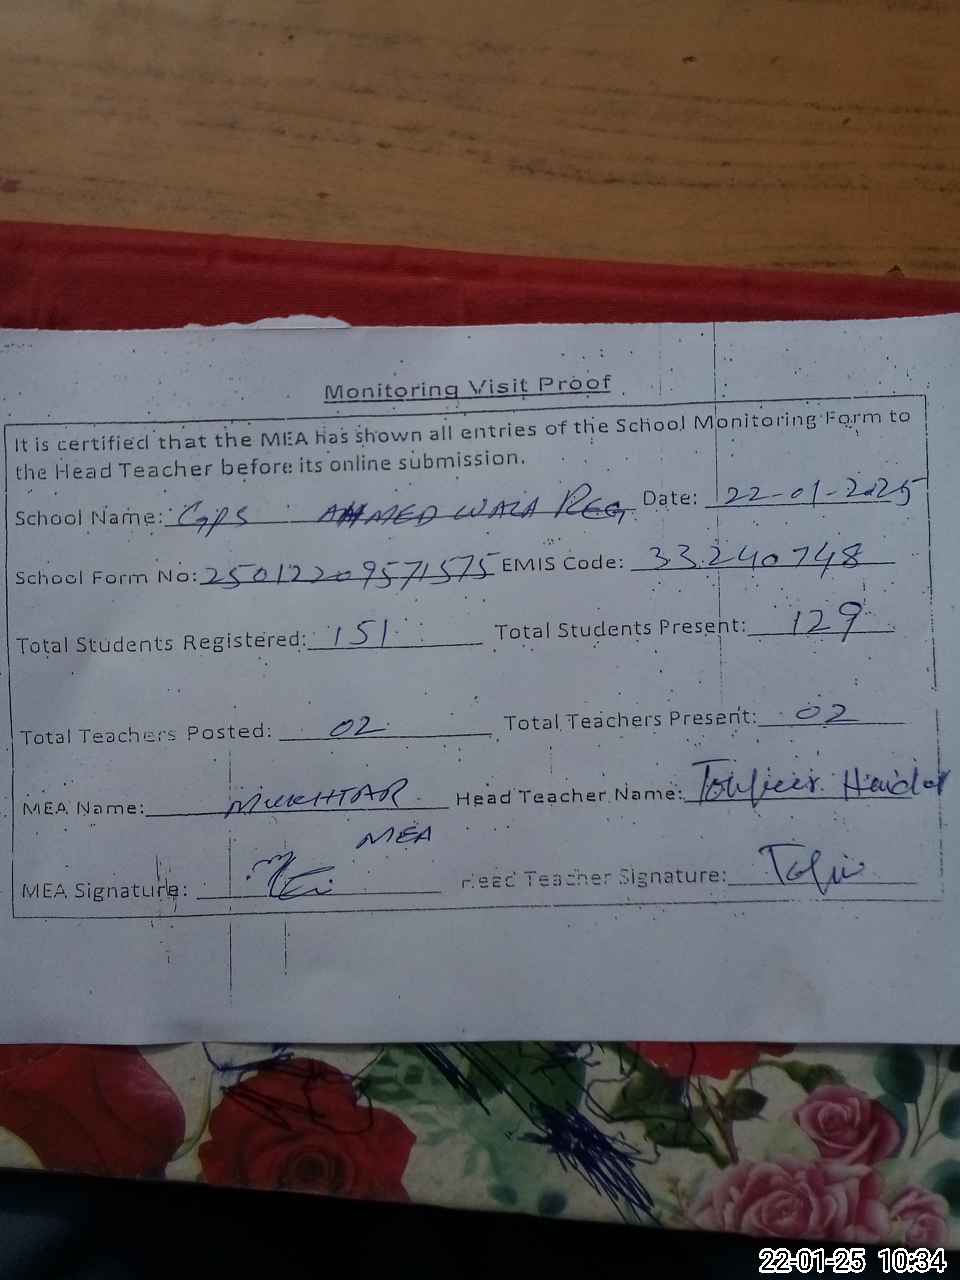 Monitoring Visit Proof
It is certified that the MEA has shown all entries of the School Monitoring Form to
the Head Teacher before its online submission.
School Name: GPS AHMED WALA REG Date: 22-01-2025
School Form No: 25012209571575 EMIS Code: 33240748
Total Students Registered: 151 Total Students Present: 129
Total Teachers Posted: 02 Total Teachers Present: 02
MEA Name: MUKHTAR Head Teacher Name: Haidar
MEA
MEA Signature: Head Teacher Signature:
22-01-25 10:34